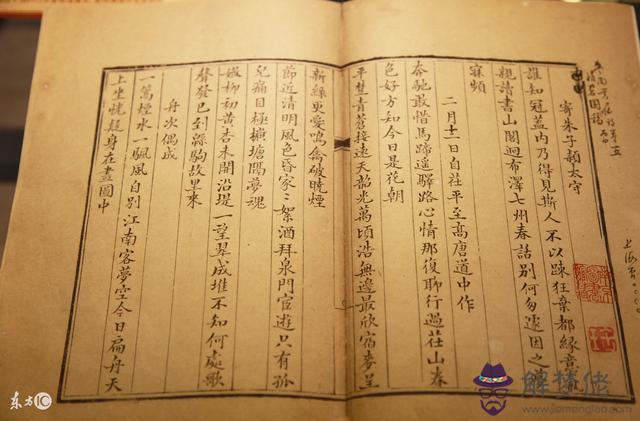 寄朱子頴太守
誰知冠蓋內乃得見斯人不以踈狂棄都緣意
親讀書山閣迥布澤七州春話別何匆遽因之
寐頻
二月十二日自茌平至高唐道中作
奔馳敢惜馬蹄遥驛路心情那復聊行過茌山春
色好方知今日是花朝
平楚青蒼接遠天韶光萬頃浩無邊最欣宿麥呈
新綠更愛鳴禽破曉煙
節近清明風色昏家〻絮酒拜泉門宦遊只有孤
兒痛目極橫塘隔夢魂
嫩柳初黃杏未開沿堤一望翠成堆不知何處歌
聲發已到緜駒故里來
舟次偶成
一篙煙水一颿風自別江南客夢空今日扁舟天
上坐恍疑身在畫圖中
东方IC
解梦佬
www.jiemenglao.com